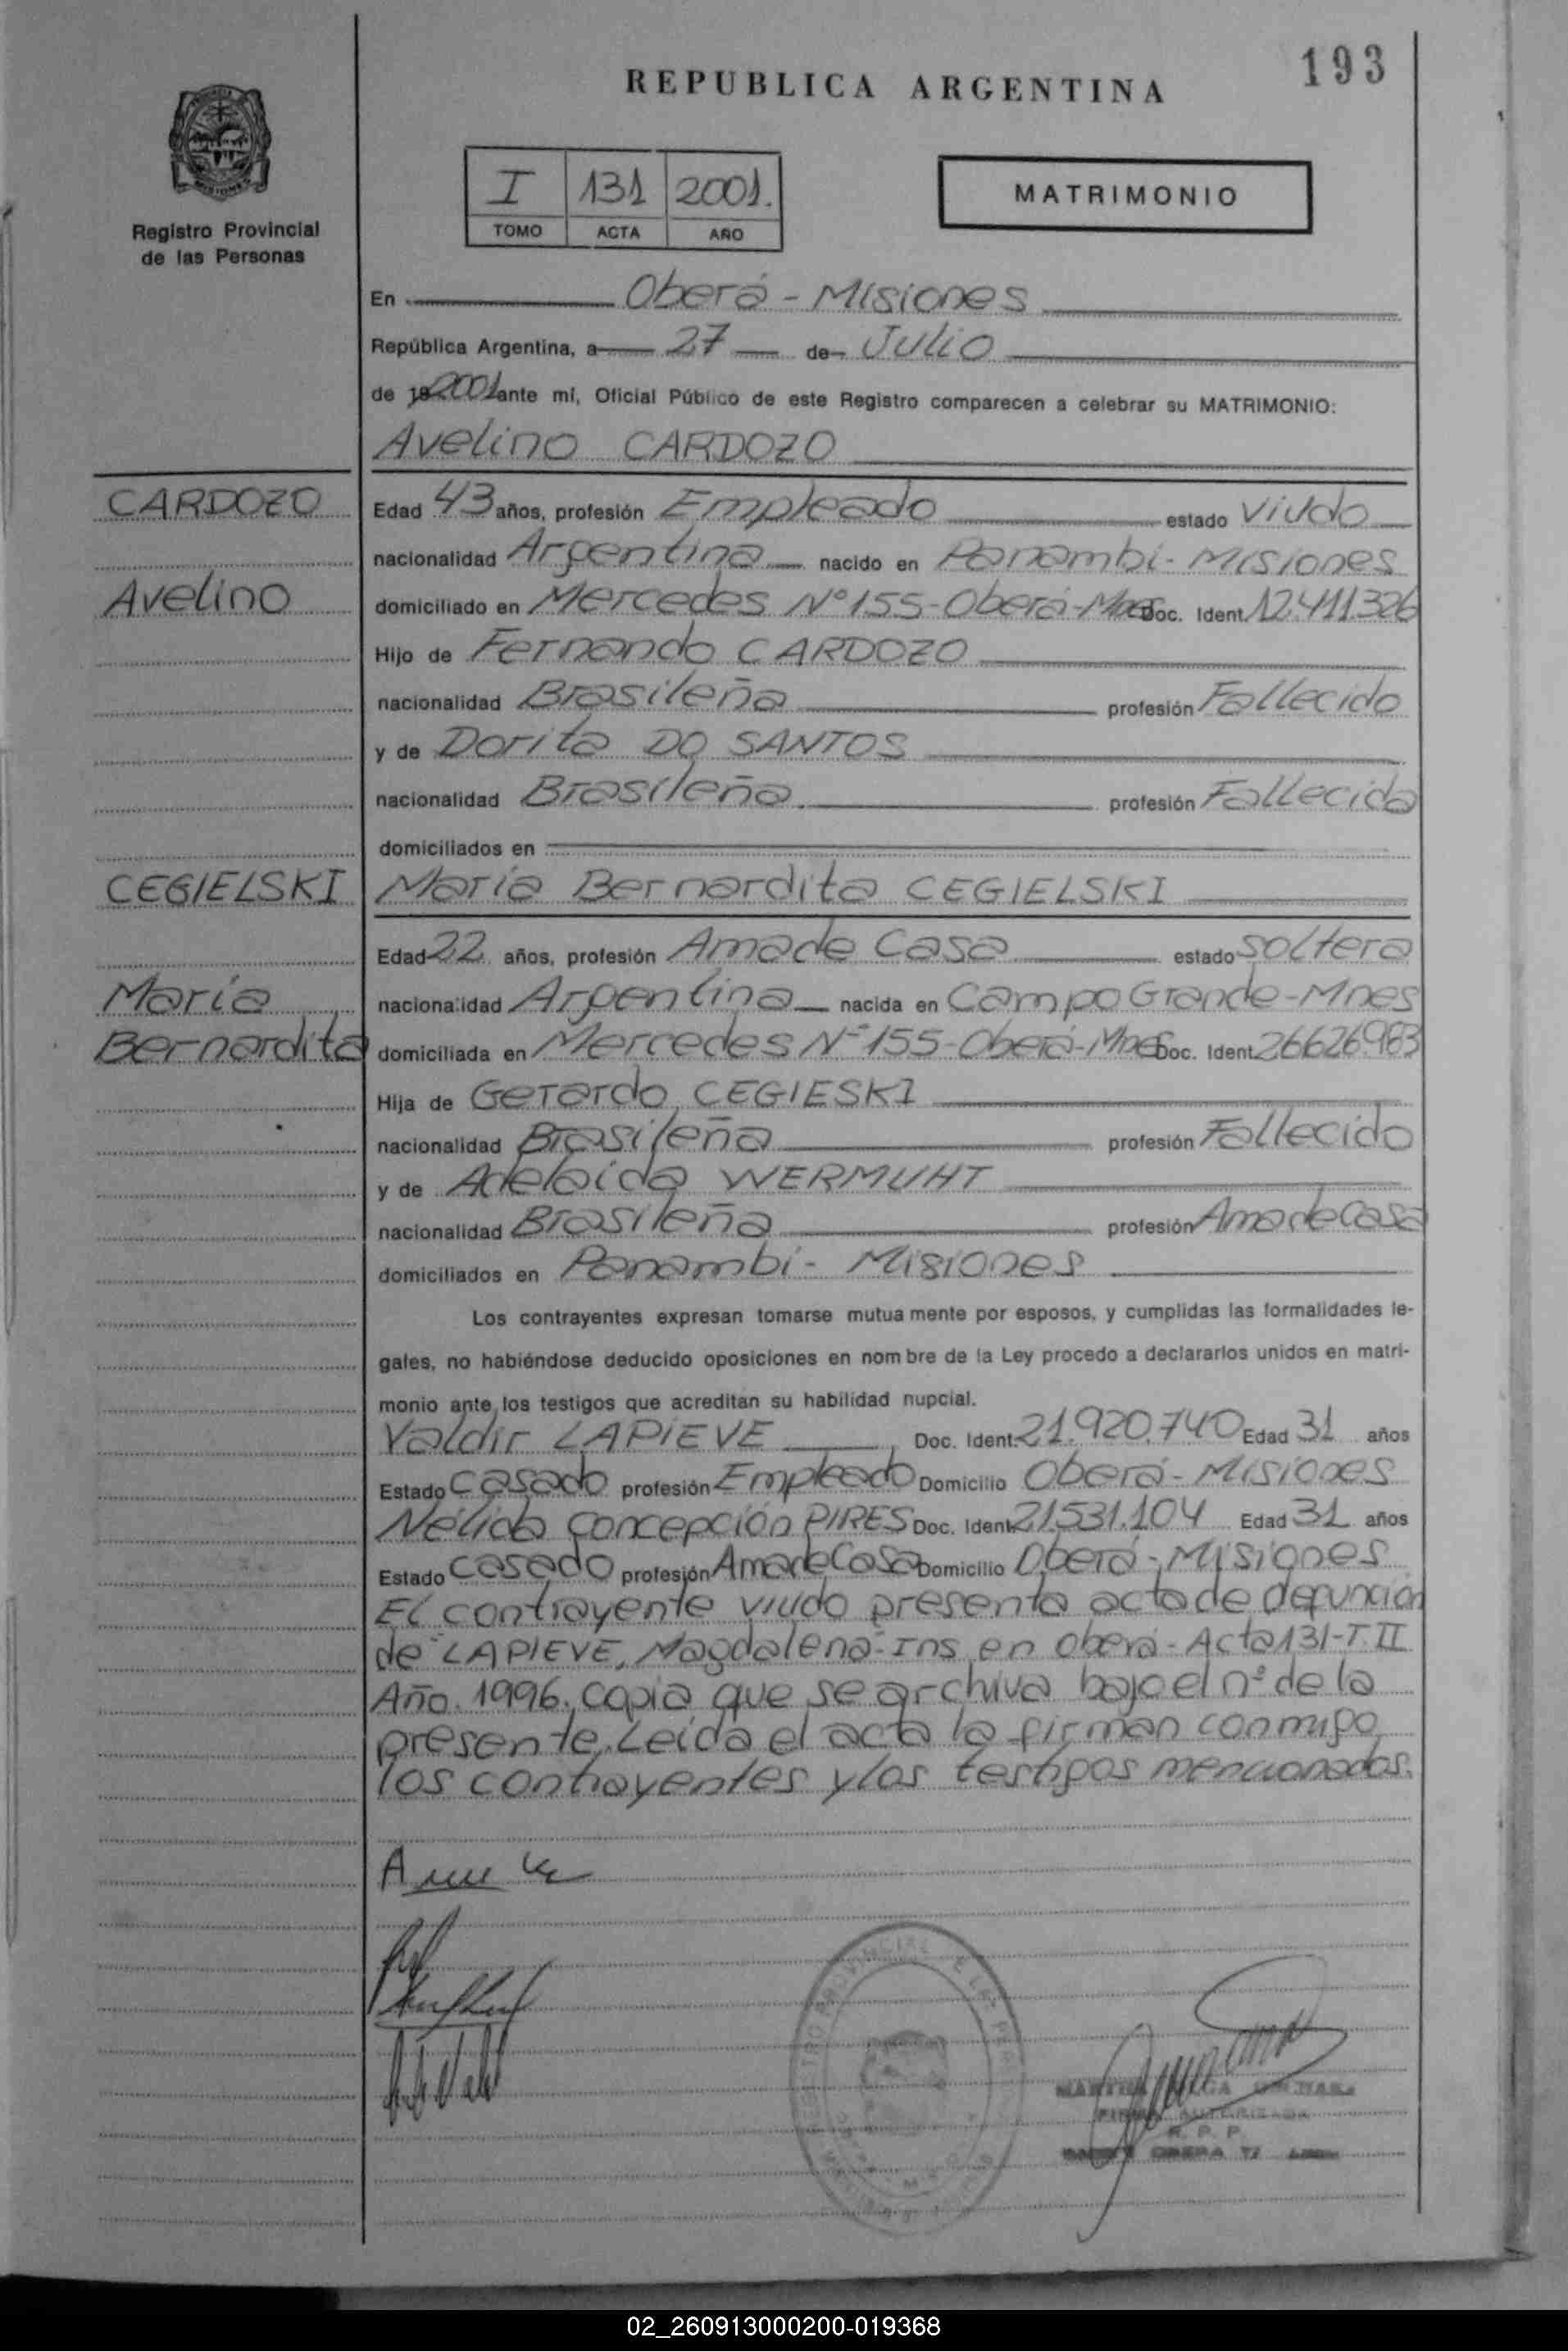 193
REPUBLICA ARGENTINA
I 131 2001.
TOMO ACTA AÑO
MATRIMONIO
Registro Provincial
de las Personas
En Oberá - Misiones
República Argentina, a 27 de Julio
de 19 2001 ante mí, Oficial Público de este Registro comparecen a celebrar su MATRIMONIO:
Avelino CARDOZO
CARDOZO
Avelino
Edad 43 años, profesión Empleado estado Viudo
nacionalidad Argentina nacido en Panambí - Misiones
domiciliado en Mercedes Nº 155 - Oberá - Mnes Doc. Ident. 12.411.326
Hijo de Fernando CARDOZO
nacionalidad Brasileña profesión Fallecido
y de Dorita DO SANTOS
nacionalidad Brasileña profesión Fallecida
domiciliados en
CEGIELSKI María Bernardita CEGIELSKI
María
Bernardita
Edad 22 años, profesión Ama de Casa estado soltera
nacionalidad Argentina nacida en Campo Grande - Mnes
domiciliada en Mercedes Nº 155 - Oberá - Mnes Doc. Ident. 26626.983
Hija de Gerardo CEGIESKI
nacionalidad Brasileña profesión Fallecido
y de Adelaida WERMUHT
nacionalidad Brasileña profesión Ama de Casa
domiciliados en Panambí - Misiones
Los contrayentes expresan tomarse mutuamente por esposos, y cumplidas las formalidades le-
gales, no habiéndose deducido oposiciones en nombre de la Ley procedo a declararlos unidos en matri-
monio ante los testigos que acreditan su habilidad nupcial.
Valdir LAPIEVE Doc. Ident. 21.920.740 Edad 31 años
Estado casado profesión Empleado Domicilio Oberá - Misiones
Nélida Concepción PIRES Doc. Ident. 21.531.104 Edad 31 años
Estado casado profesión Ama de Casa Domicilio Oberá - Misiones
El contrayente viudo presenta acta de defunción
de LAPIEVE, Magdalena - Ins en Oberá - Acta 131 - T. II
Año. 1996, copia que se archiva bajo el nº de la
presente. Leída el acta la firman conmigo
los contrayentes y los testigos mencionados.
FIRMA AUTORIZADA
R. P. P.
02_260913000200-019368